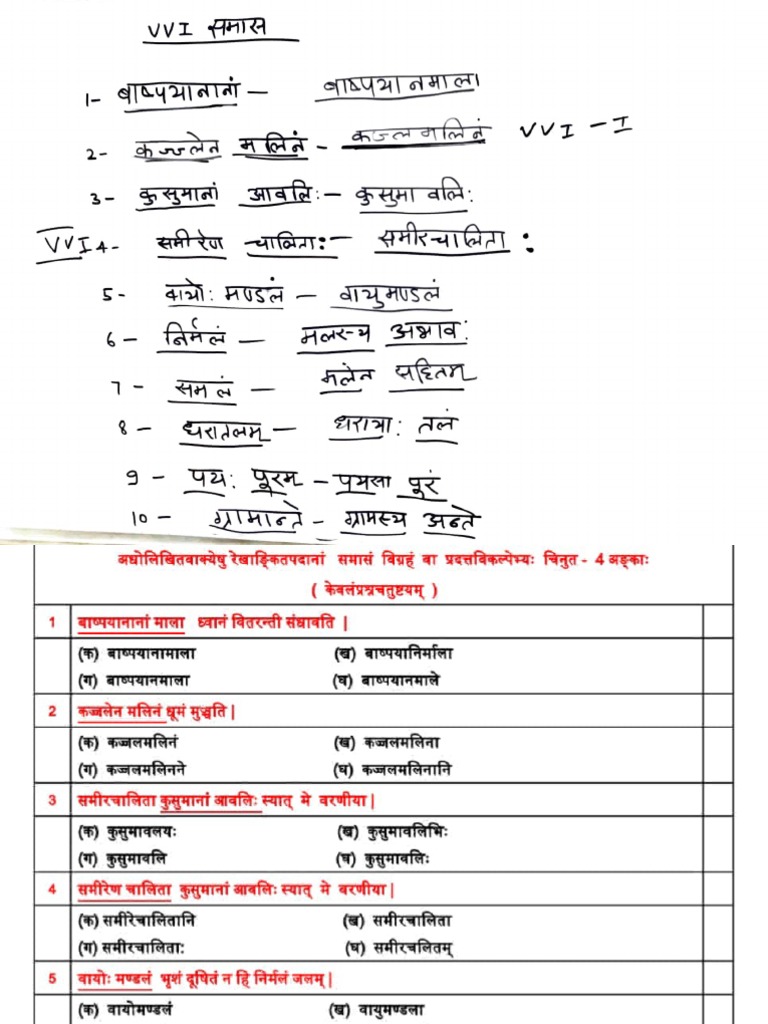 VVI समास
1- बाष्पयानानां – बाष्पयानमाला
2- कज्जलेन मलिनं - कज्लमलिनं VVI - I
3- कुसुमानां आवलिः – कुसुमावलिः
VVI 4- समीरेण चालिताः – समीरचालिता :
5- वायोः मण्डलं – वायुमण्डलं
6- निर्मलं – मलस्य अभावः
7- समलं – मलेन सहितम्
8 – धरातलम् – धरात्राः तलं
9 - पयः पूरम – पयसा पूरं
10 – ग्रामान्ते – ग्रामस्य अन्ते
अधोलिखितवाक्येषु रेखाङ्कितपदानां समासं विग्रहं वा प्रदत्तविकल्पेभ्यः चिनुत - 4 अङ्काः
( केवलंप्रश्नचतुष्टयम् )
1 बाष्पयानानां माला ध्वानं वितरन्ती संधावति |
(क) बाष्पयानामाला (ख) बाष्पयानिर्माला
(ग) बाष्पयानमाला (घ) बाष्पयानमाले
2 कज्जलेन मलिनं धूमं मुञ्चति |
(क) कज्जलमलिनं (ख) कज्जलमलिना
(ग) कज्जलमलिनने (घ) कज्जलमलिनानि
3 समीरचालिता कुसुमानां आवलिः स्यात् मे वरणीया |
(क) कुसुमावलयः (ख) कुसुमावलिभिः
(ग) कुसुमावलि (घ) कुसुमावलिः
4 समीरेण चालिता कुसुमानां आवलिः स्यात् मे वरणीया |
(क) समीरेचालितानि (ख) समीरचालिता
(ग) समीरचालिताः (घ) समीरचलितम्
5 वायोः मण्डलं भृशं दूषितं न हि निर्मलं जलम् |
(क) वायोमण्डलं (ख) वायुमण्डला